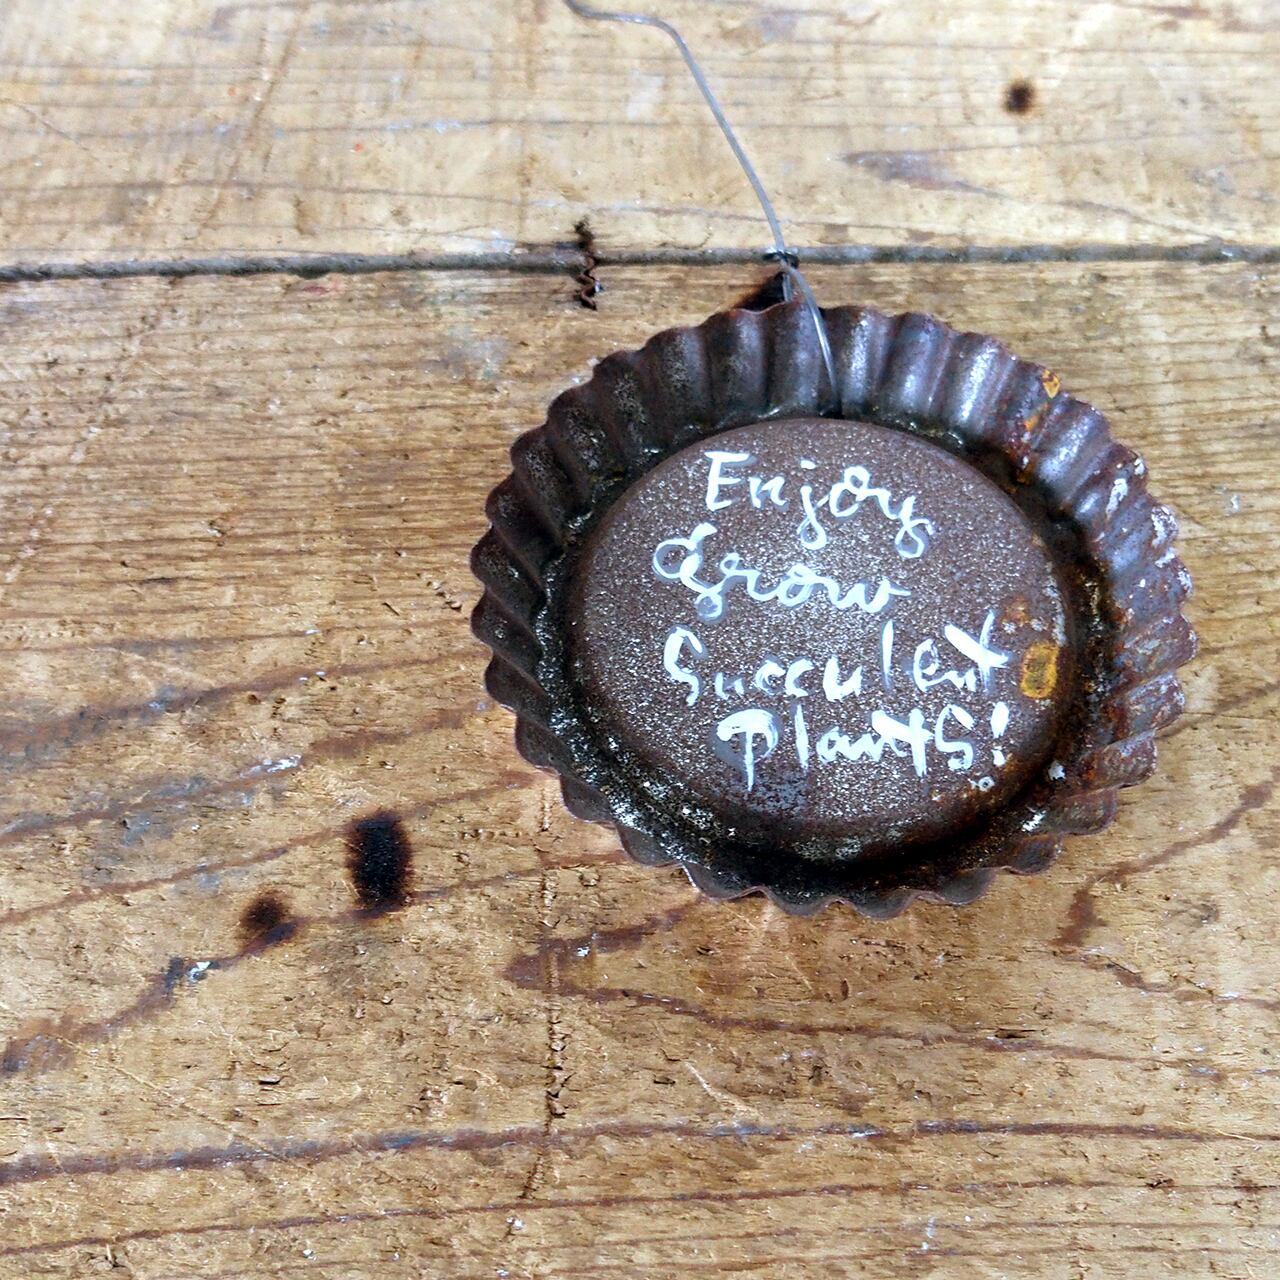 Enjoy
Grow
Succulent
Plants!